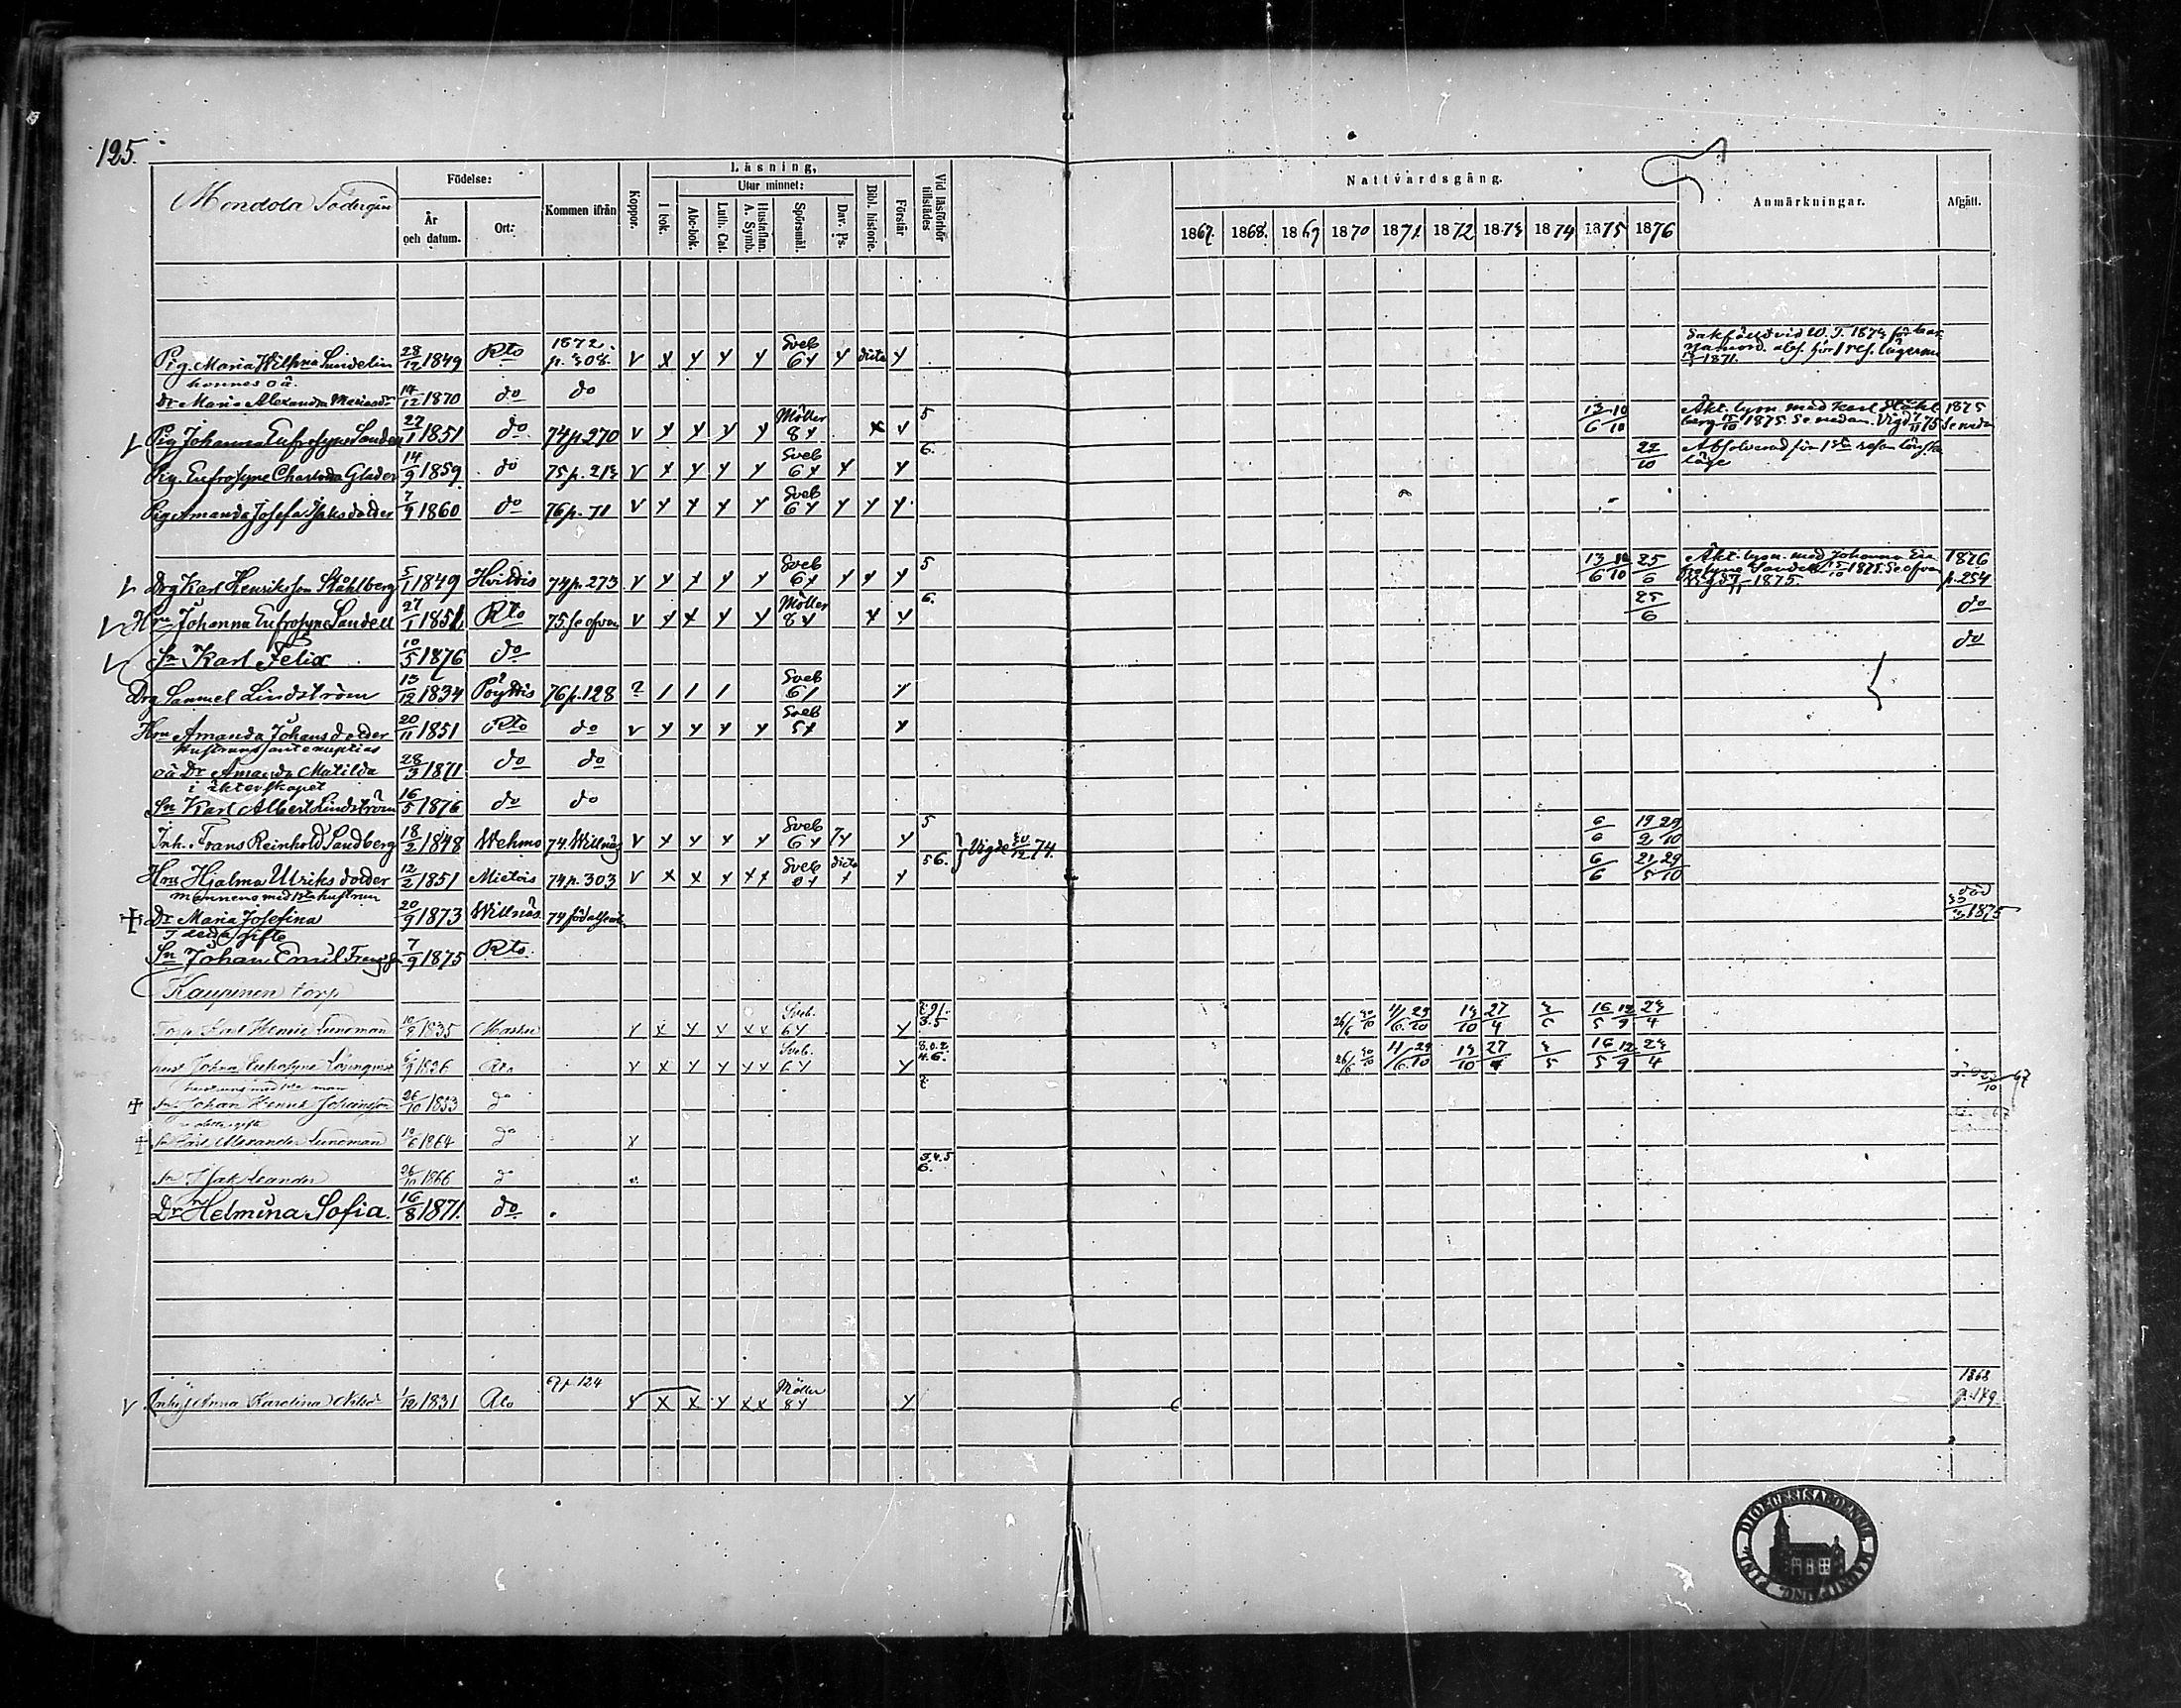 125.
Mondola Södergård
Födelse:
År och datum.
Ort:
Kommen ifrån
Koppor.
Läsning,
I bok.
Utur minnet:
Abc-bok.
Luth. Cat.
Hustaflan. A. Symb.
Spörsmål.
Dav. Ps.
Bibl. historie.
Förstår
Vid läsförhör tillstädes
Nattvardsgång.
1867. 1868. 1869 1870 1871. 1872 1873 1874 1875 1876
Anmärkningar.
Afgått.
Pig. Maria Wilhna Lundelin 28/12 1849 Rto 1872. p. 308. v x y y y Sveb 6y y dicto y
hennes oä.
Dr Maria Alexandra Mariasdr 14/12 1870 do do
Pig Johanna Eufrosyne Sandell 27/1 1851 do 74 p. 270 v y y y y Möller 8y x v 5 13/6 10/10 Äkt. lysn. med Karl Ståhlberg 15/10 1875. Se nedan. Vigd 7/11 75 1875 Se nedan
Pig. Eufrosyne Charlotta Glader 14/9 1859. do 75 p. 213 v x y y y Sveb 6y y y 6. 22/10 Absolverad för 1sta resan lönskaläge
Pig Amanda Josefa Isaksdotter 7/9 1860 do 76 p. 71 v y y y y Sveb 6y y y y
Drg Karl Henriksson Ståhlberg 5/1 1849 Hvittis 74 p. 273 v y y y y Sveb 6y y y y 5 13/6 10/10 25/6 Äkt. lysn. med Johanna Eufrosyne Sandell 15/10 1875. Se ofvan Vigd 7/11 1875. 1876 p. 254
Hru Johanna Eufrosyne Sandell 27/1 1851 Rto 75. se ofvan v y x y y Möller 8y y y 6. 25/6 do
Sn Karl Felix 10/5 1876 do do
Drg Samuel Lindström 13/12 1834 Pöyttis 76 p. 128 ? / / / Sveb 6/ y
Hru Amanda Johansdotter 20/11 1851 Rto do v y y y y Sveb 5y y
Hustruns ante nuptias
oä Dr Amanda Matilda 28/3 1871 do do
i äktenskapet
Sn Karl Albert Lindström 16/5 1876 do do
Inh. Frans Reinhold Sandberg 18/2 1848 Wehmo 74 Willnäs v y y y y Sveb 6y 7y y 5 Vigde 30/12 74. 6/6 19/2 29/10
Hru Hjalma Ulriksdotter 12/2 1851 Mietois 74 p. 303 v x x y xx Sveb dicto y y 56. 6/6 21/5 29/10
mannens med 1sta hustrun
Dr Maria Josefina 20/9 1873 Willnäs 74 död 1875
I detta gifte
Sn Johan Emil Fransson 7/9 1875 Rto.
Kaupinen torp
Torp. Karl Henric Lundman 10/9 1835 Masku y x y v xx Sveb. 6y y 26/6 30/10 11/6 29/10 13/10 27/4 3/5 16/5 12/9 23/4
1836 Rto y x y y xx Sveb. 6y y 26/6 30/10 11/6 29/10 13/10 27/4 3/5 16/5 12/9 23/4
hustruns med 1sta man
Sn Johan Henrik Johansson 26/10 1853 do
i detta gifte
Sn Karl Alexander Lundman 1864 do y
Sn Isak Leander 26/10 1866 do 3.4.5 6.
Dr Helmina Sofia. 16/8 1871. do
Inhys Anna Karolina Nilsd. 1/12 1831 Rto 67 p. 124 y x x y xx Möller 8y y 1868 p. 149.